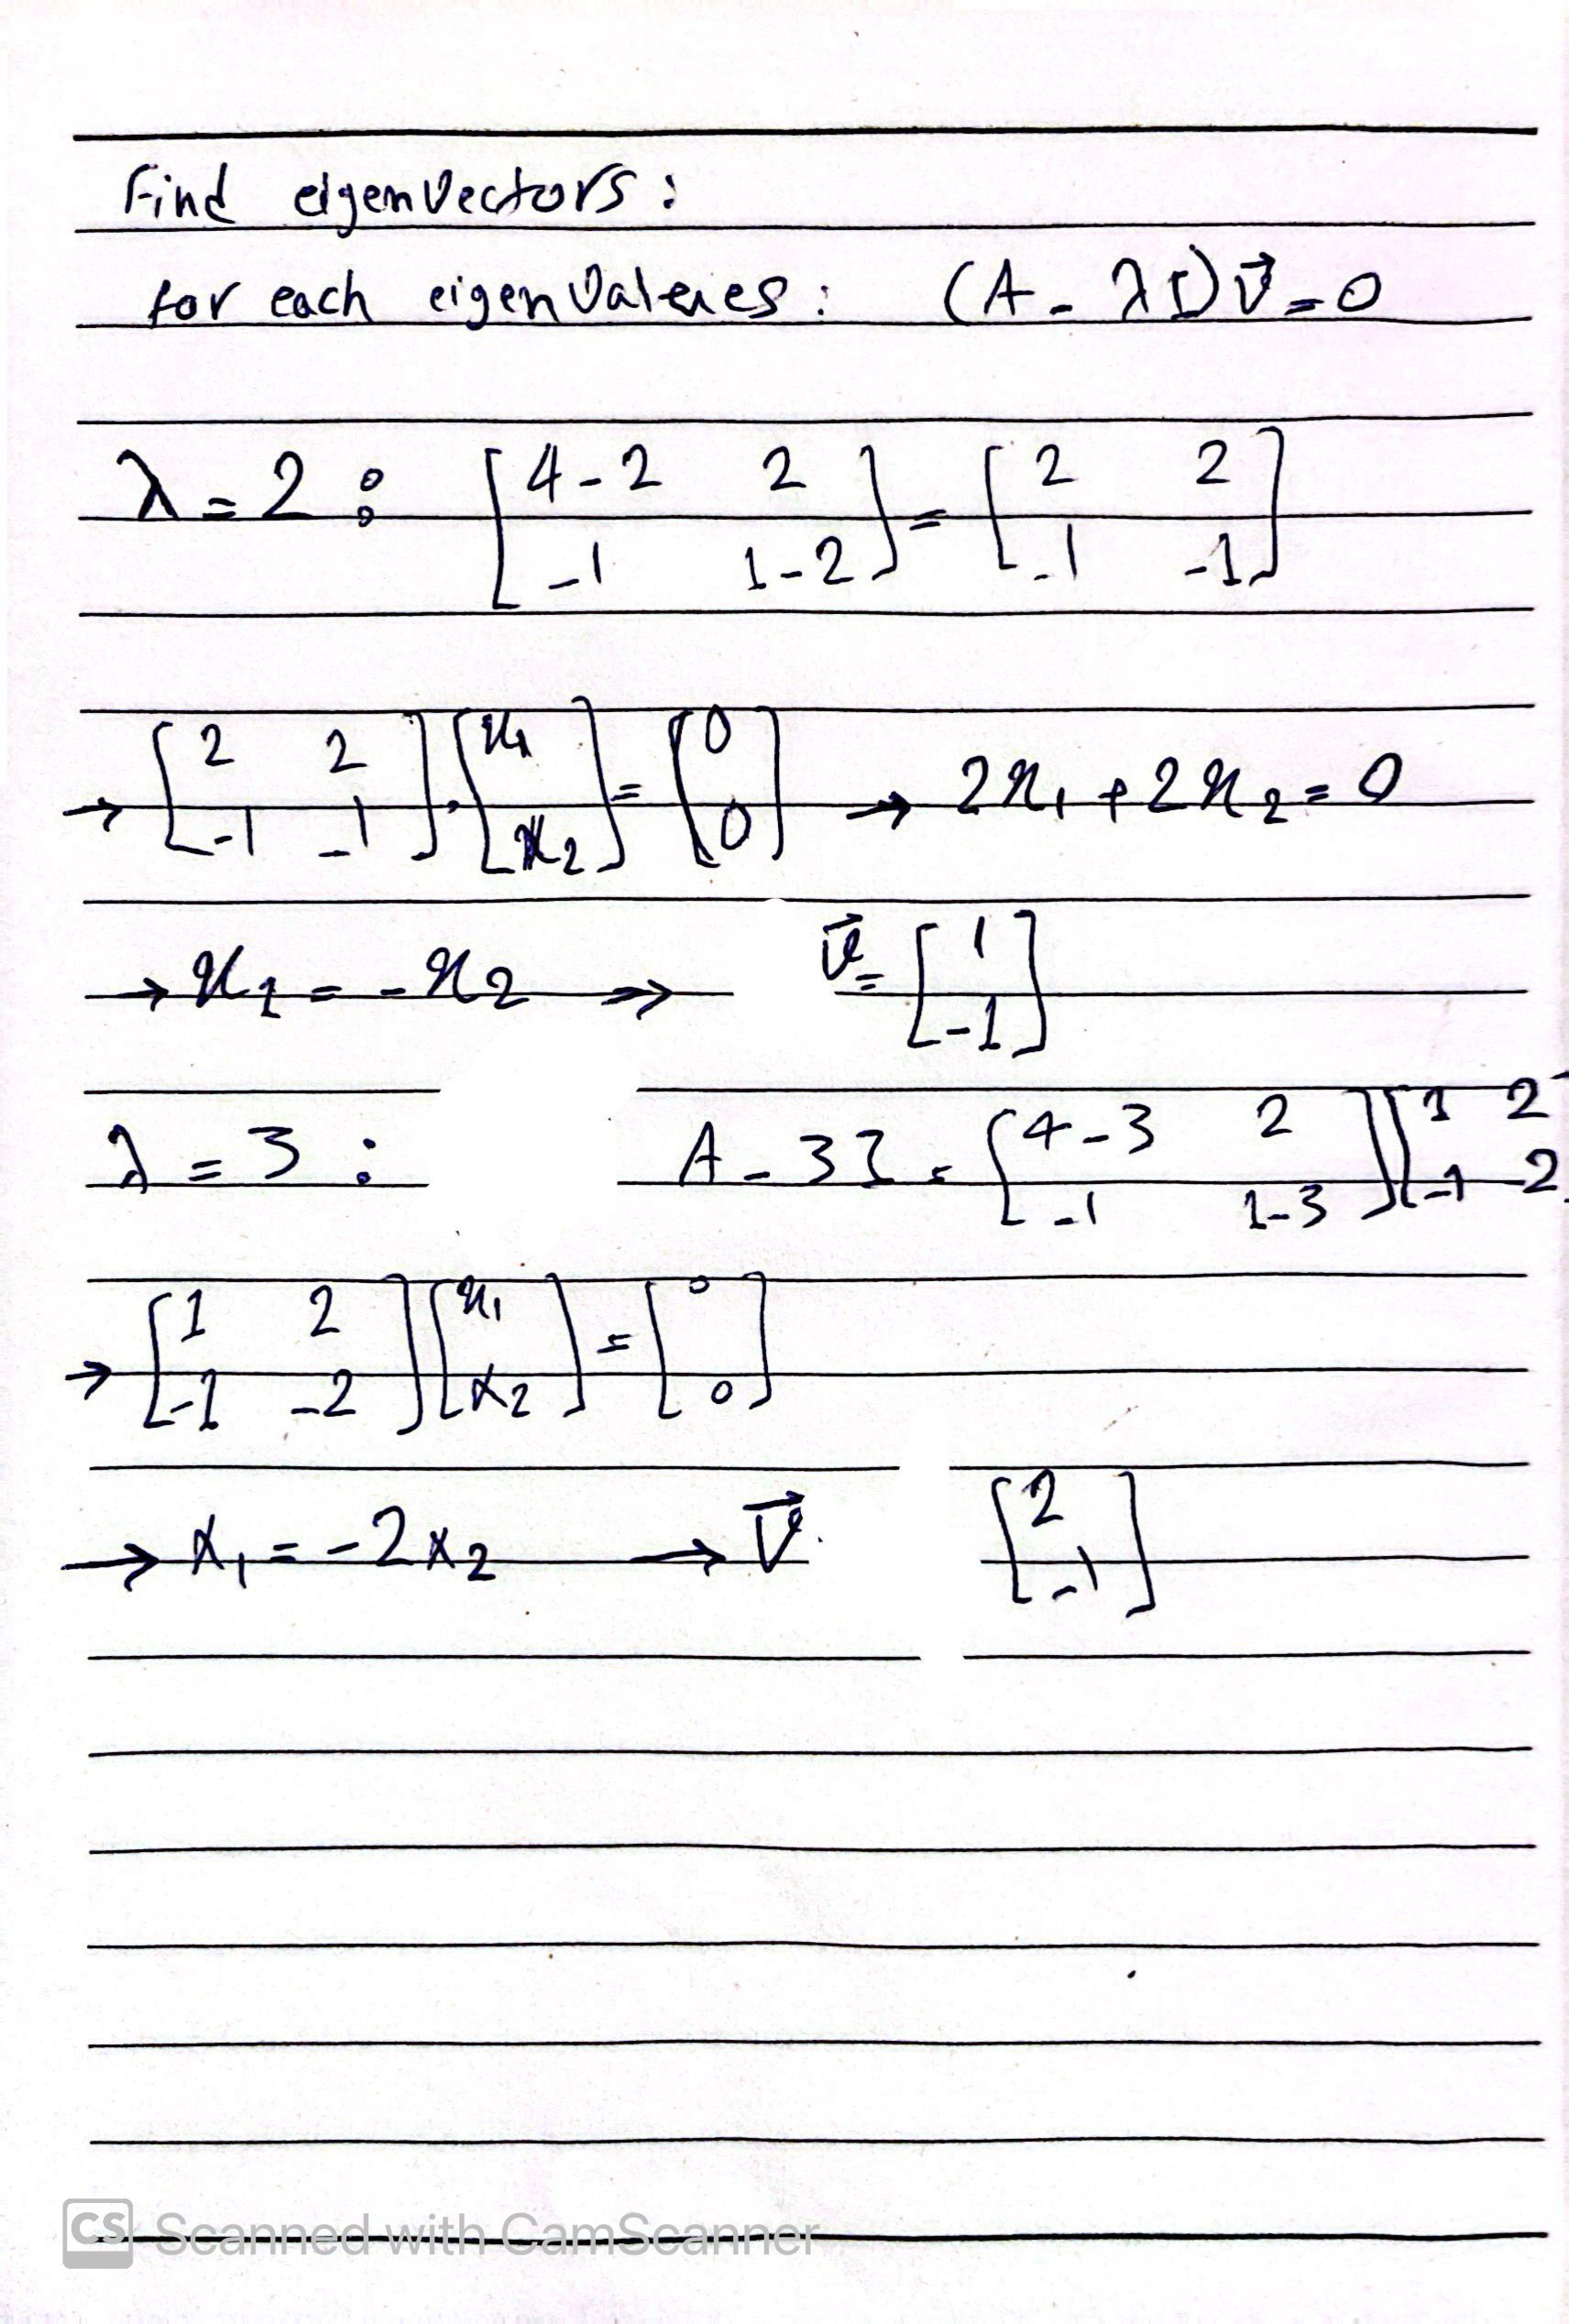 Find eigenvectors:
for each eigenvalues: (A - λI)v⃗ = 0
λ = 2: [4-2 2; -1 1-2] = [2 2; -1 -1]
→ [2 2; -1 -1] · [x₁; x₂] = [0; 0] → 2x₁ + 2x₂ = 0
→ x₁ = -x₂ → v⃗ = [1; -1]
λ = 3: A - 3I = [4-3 2; -1 1-3] [1 2; -1 -2]
→ [1 2; -1 -2] [x₁; x₂] = [0; 0]
→ x₁ = -2x₂ → v⃗ [2; -1]
CS Scanned with CamScanner